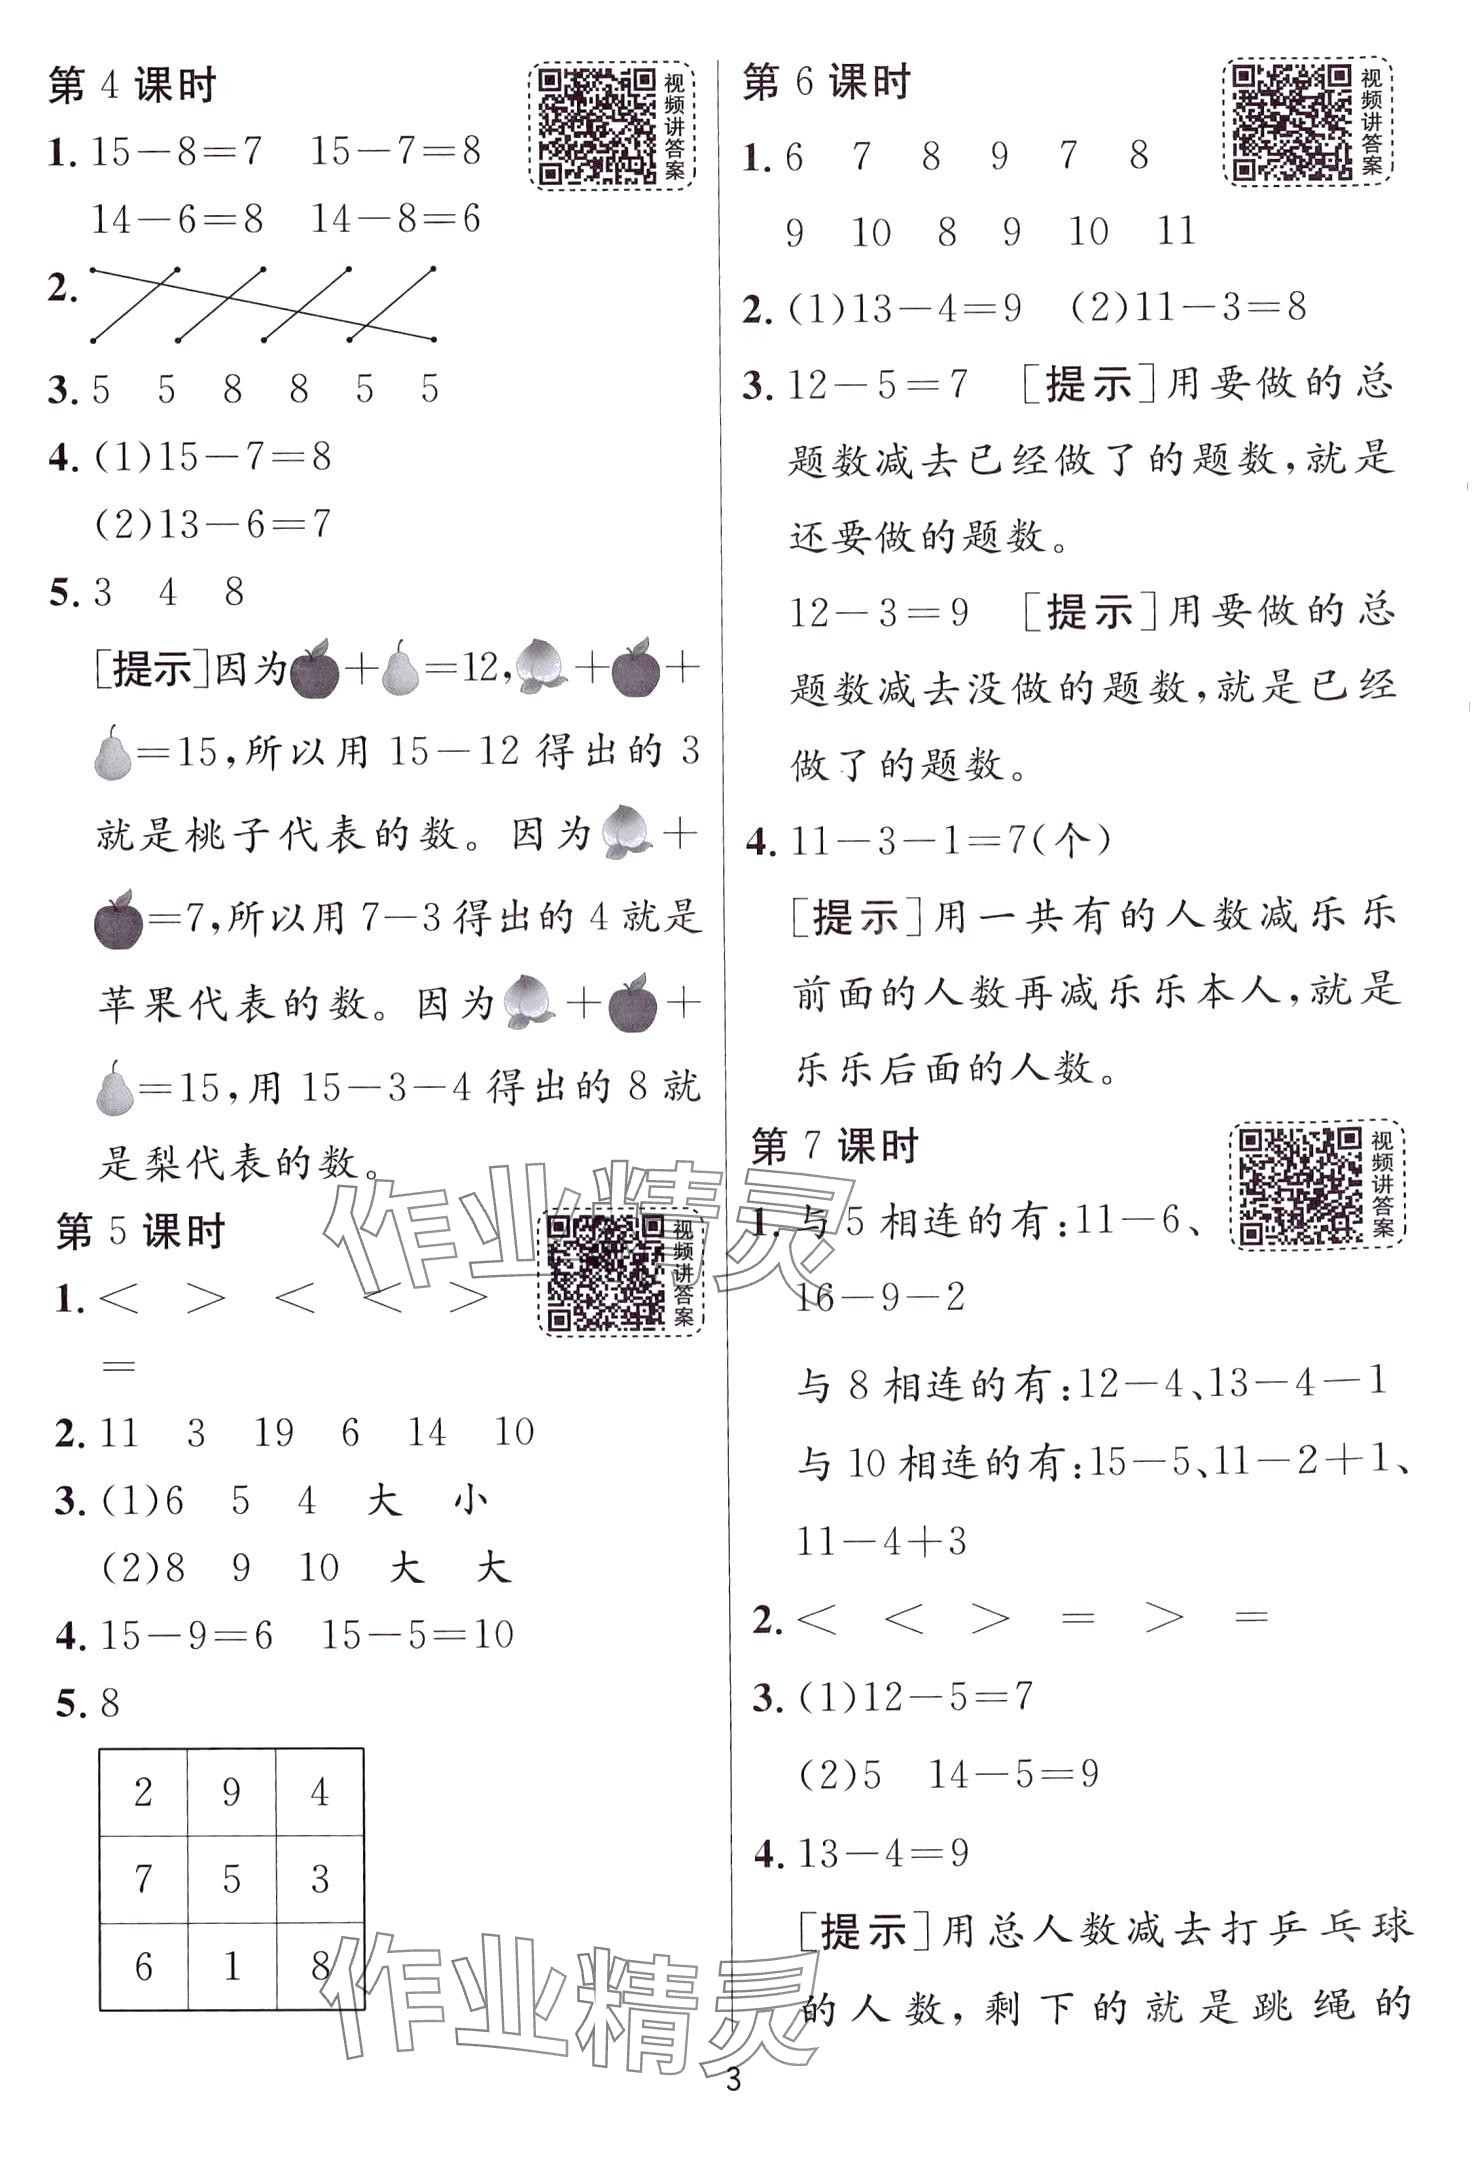 第 4 课时
视频讲答案
1. 15－8＝7　15－7＝8
14－6＝8　14－8＝6
2.
3. 5　5　8　8　5　5
4. (1)15－7＝8
(2)13－6＝7
5. 3　4　8
[提示]因为＋＝12,＋＋
＝15,所以用 15－12 得出的 3
就是桃子代表的数。因为＋
＝7,所以用 7－3 得出的 4 就是
苹果代表的数。因为＋＋
＝15,用 15－3－4 得出的 8 就
是梨代表的数。
第 5 课时
视频讲答案
1. ＜　＞　＜　＜　＞
＝
2. 11　3　19　6　14　10
3. (1)6　5　4　大　小
(2)8　9　10　大　大
4. 15－9＝6　15－5＝10
5. 8
2　9　4
7　5　3
6　1　8
第 6 课时
视频讲答案
1. 6　7　8　9　7　8
9　10　8　9　10　11
2. (1)13－4＝9　(2)11－3＝8
3. 12－5＝7　[提示]用要做的总
题数减去已经做了的题数,就是
还要做的题数。
12－3＝9　[提示]用要做的总
题数减去没做的题数,就是已经
做了的题数。
4. 11－3－1＝7(个)
[提示]用一共有的人数减乐乐
前面的人数再减乐乐本人,就是
乐乐后面的人数。
第 7 课时
视频讲答案
1. 与 5 相连的有:11－6、
16－9－2
与 8 相连的有:12－4、13－4－1
与 10 相连的有:15－5、11－2＋1、
11－4＋3
2. ＜　＜　＞　＝　＞　＝
3. (1)12－5＝7
(2)5　14－5＝9
4. 13－4＝9
[提示]用总人数减去打乒乓球
的人数,剩下的就是跳绳的
3
作业精灵
作业精灵